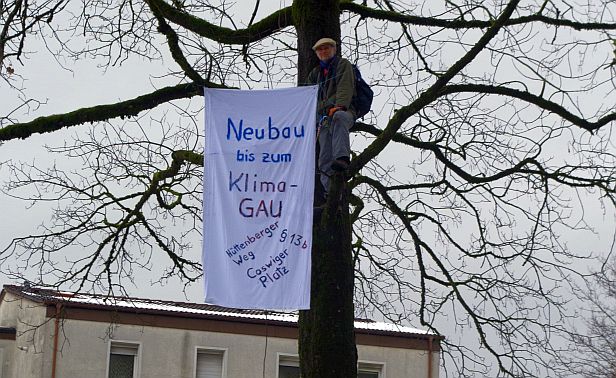 Neubau
bis zum
Klima-
GAU
Hüttenberger § 13b
Weg Coswiger
Platz